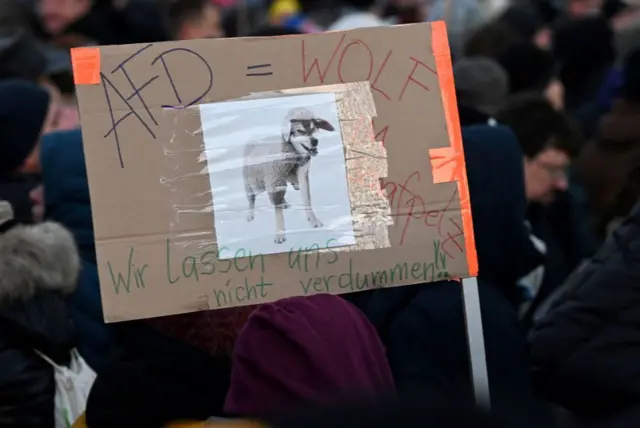 AfD = WOLF
Wir lassen uns
nicht verdummen!!